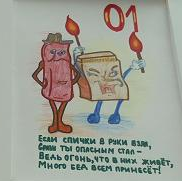 01
Если спички в руки взял,
Сразу ты опасным стал -
Ведь огонь, что в них живёт,
Много бед всем принесёт!